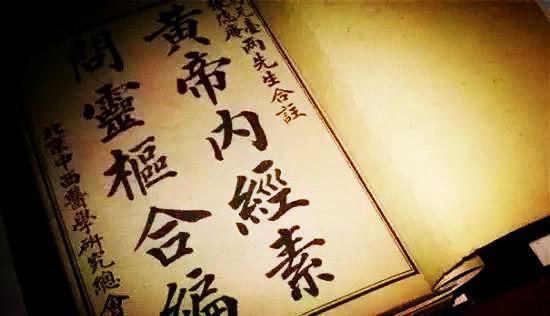 臺
隱庵
兩先生合註
黃帝內經素
問靈樞合編
北京中西醫學研究總會